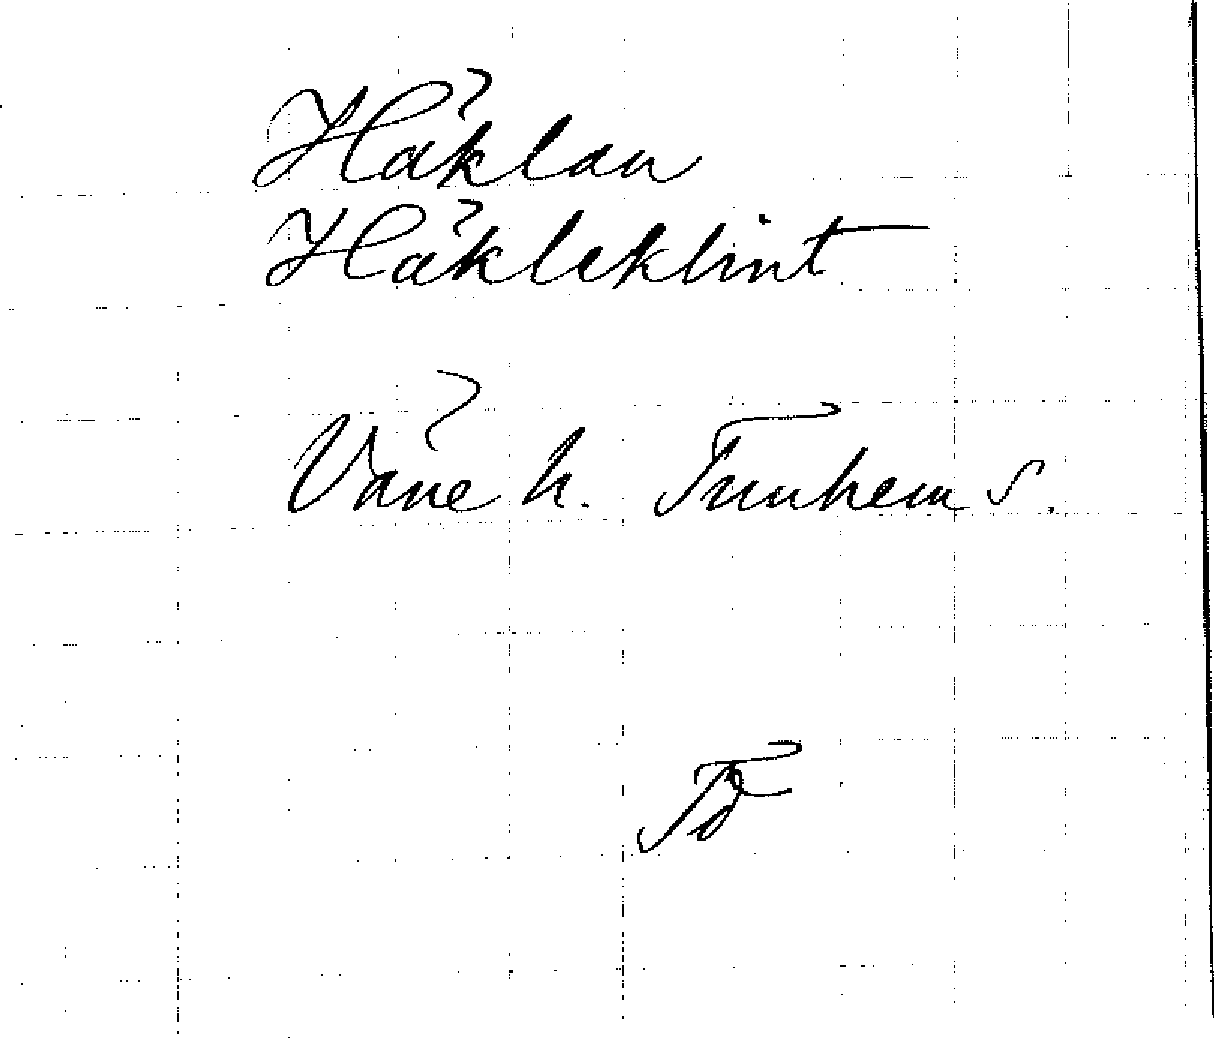 Håklan
Håkleklint
Våne h. Tunhem s.
Td